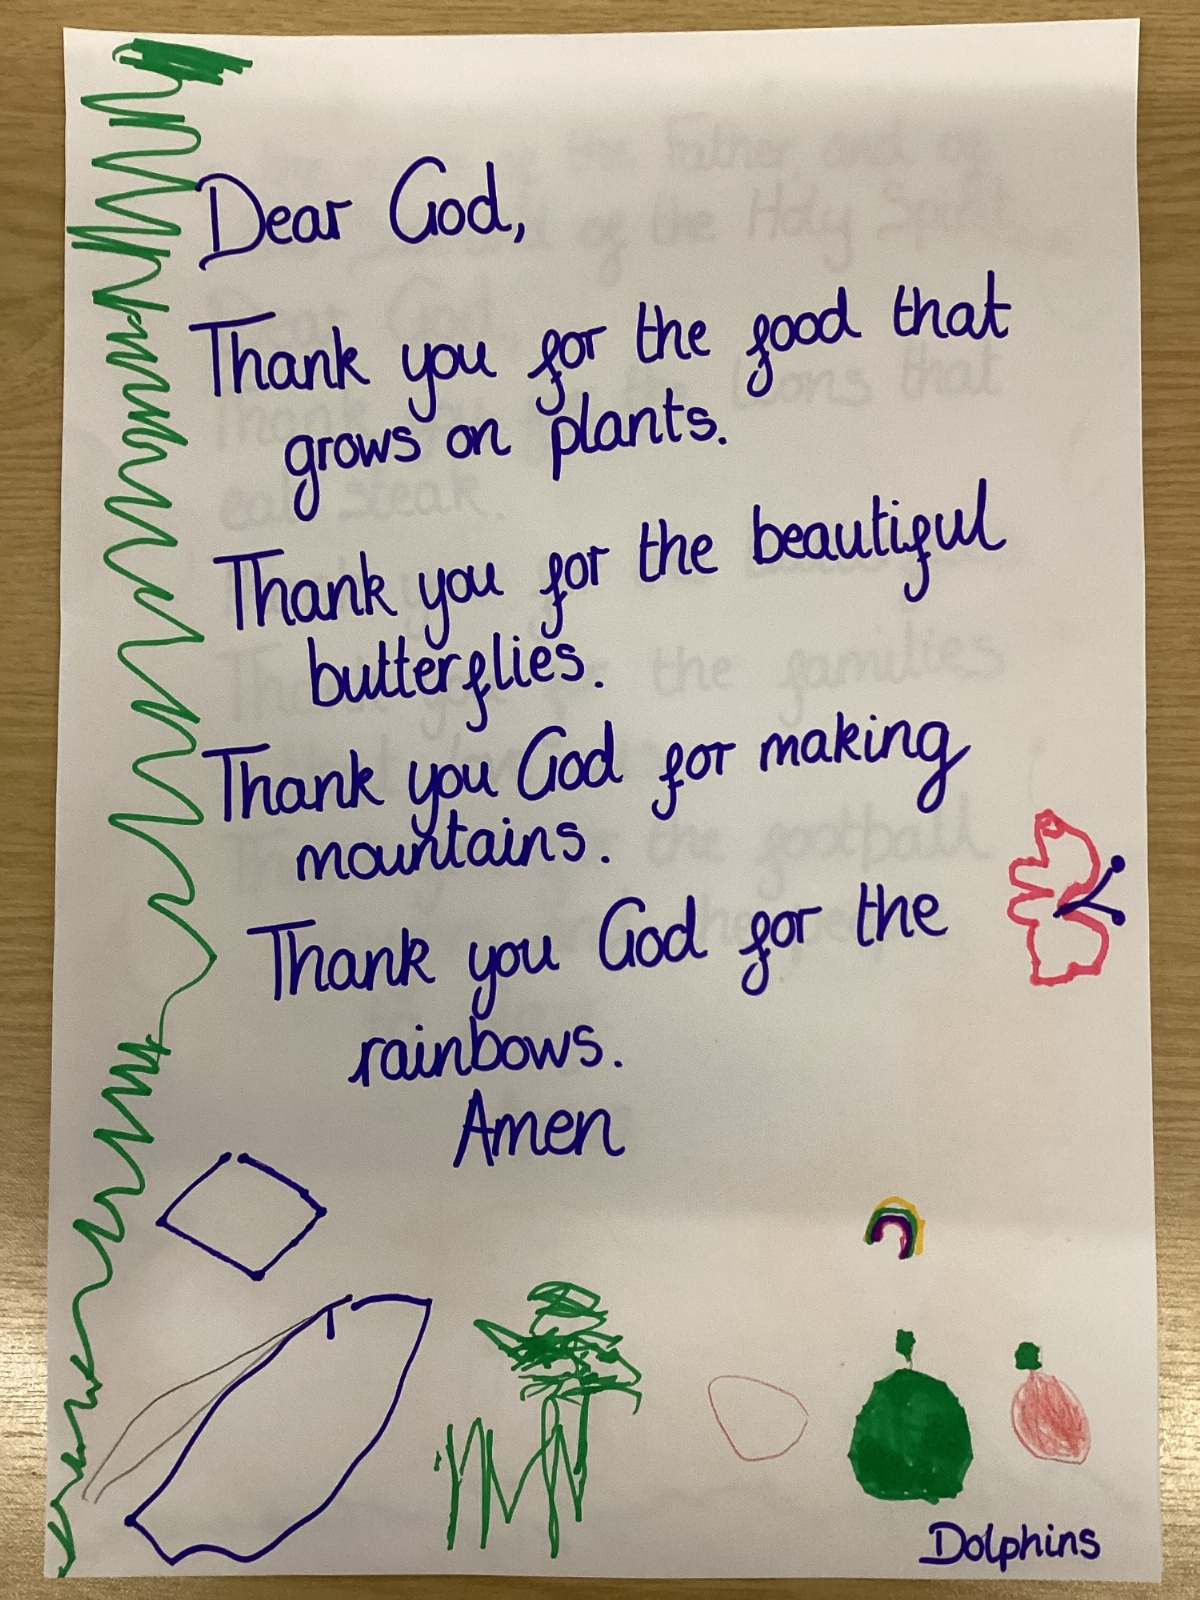 Dear God,
Thank you for the food that
grows on plants.
Thank you for the beautiful
butterflies.
Thank you God for making
mountains.
Thank you God for the
rainbows.
Amen
Dolphins